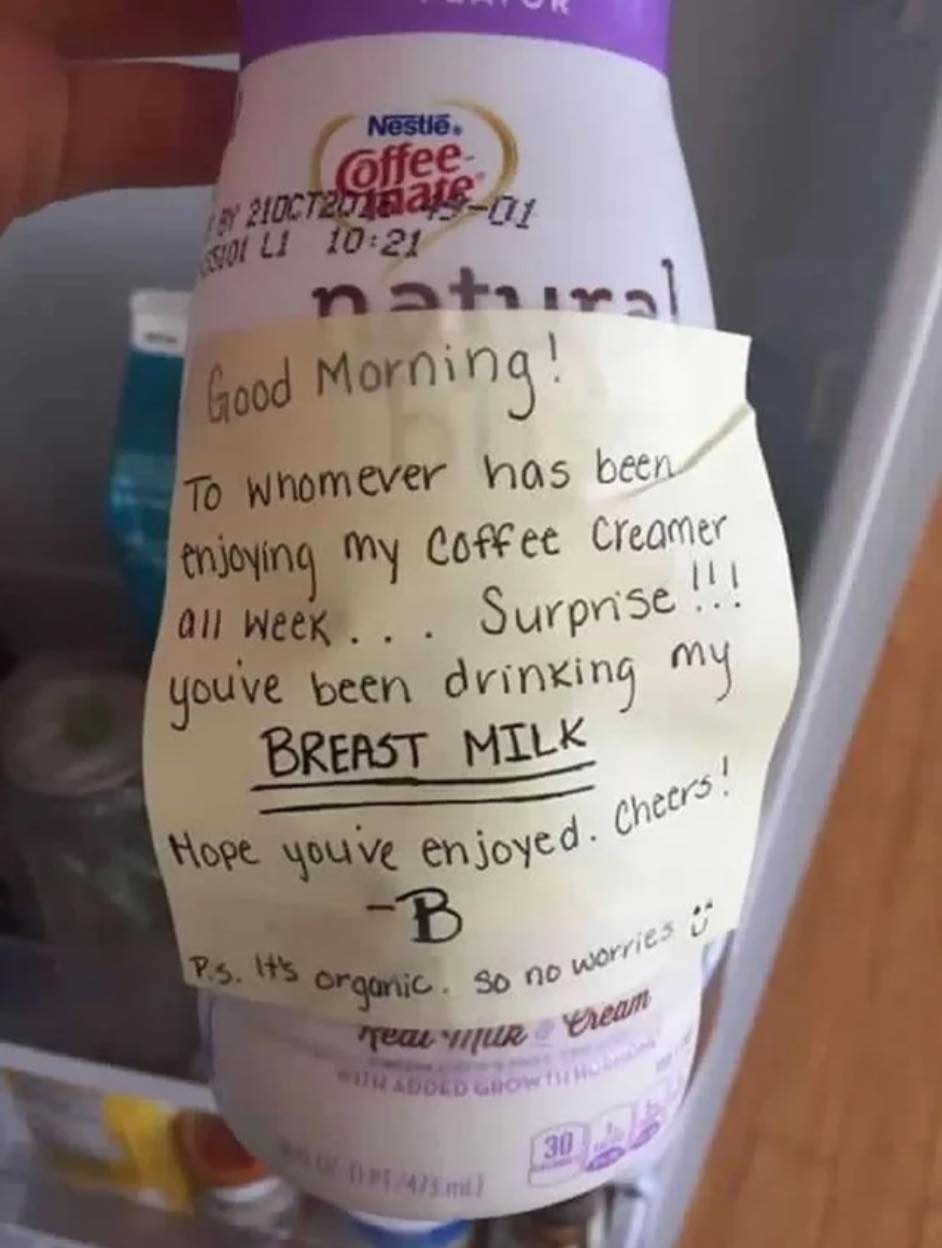 Nestlé
Coffee-
mate
BY 21OCT20 49-01
L1 10:21
natural
Good Morning!
To whomever has been
enjoying my coffee creamer
all week... Surprise!!!
you've been drinking my
BREAST MILK
Hope you've enjoyed. Cheers!
-B
P.s. It's organic. So no worries :)
Real Milk & Cream
WITH ADDED GROWTH
30
(1 PT) 473 ml)